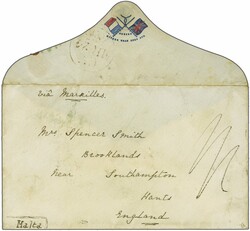 via Marseilles.
Mrs Spencer Smith
Brooklands
Near Southampton
Hants
England
Malta